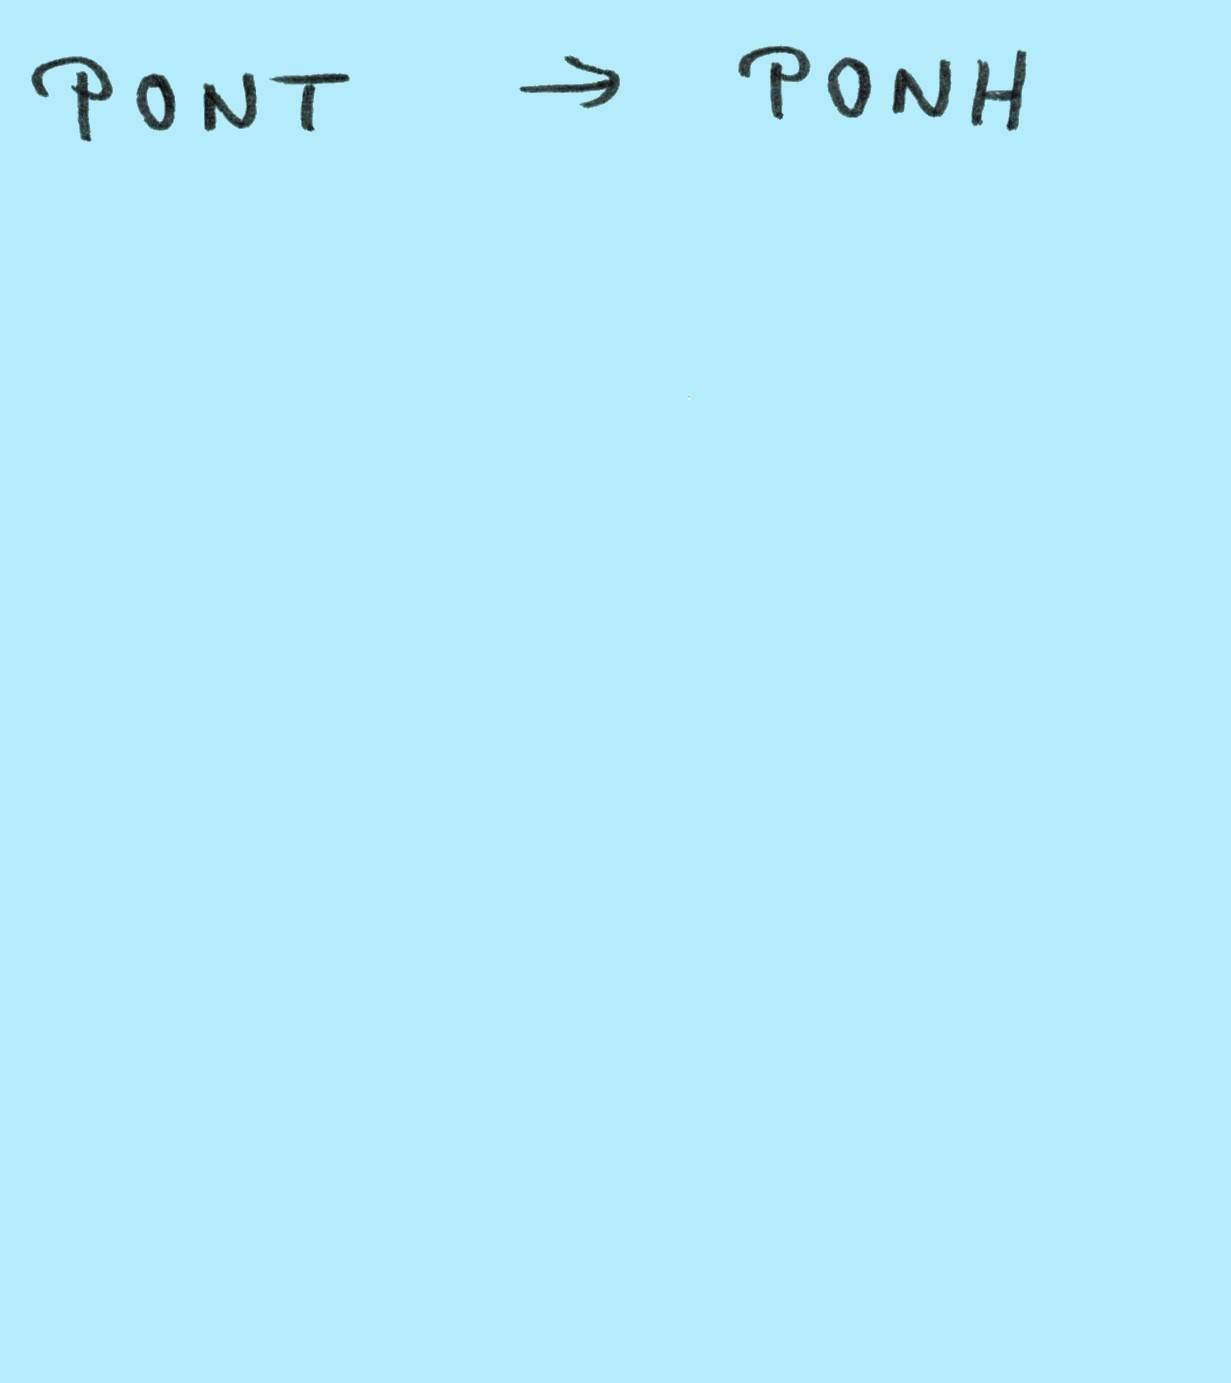 PONT → PONH